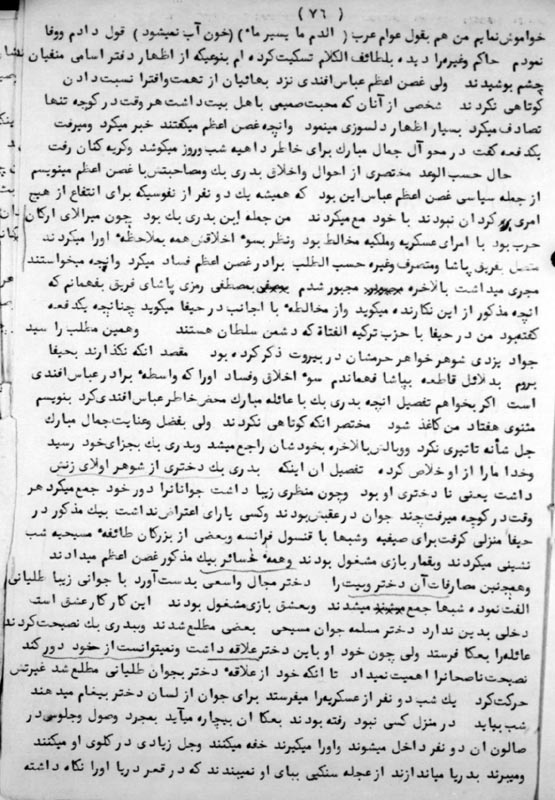 ( ٧٦ )
خواموش نمایم من هم بقول عوام عرب ( الدم ما یسیر ماء ) (خون آب نمیشود ) قول دادم ووفا
نمودم حاکم وغیره را دیده بلطائف الکلام تسکیت کرده ام بنوعیکه از اظهار دفتر اسامی منفیان
چشم پوشیدند ولی غصن اعظم عباس افندی نزد بهائیان از تهمت وافترا نسبت دادن
کوتاهی نکردند شخصی از آنان که محبت صمیمی با هل بیت داشت هر وقت در کوچه تنها
تصادف میکرد بسیار اظهار دلسوزی مینمود وانچه غصن اعظم میکفتند خبر میکرد ومیرفت
یکدفعه کفت در محو آل جمال مبارك برای خاطر داهیه شب وروز میکوشد وکریه کنان رفت
حال حسب الوعد مختصری از احوال واخلاق بدری بك ومصاحبتش با غصن اعظم مینویسم
از جمله سیاسی غصن اعظم عباس این بود که همیشه یك دو نفر از نفوسیکه برای انتفاع از هیچ
امری رو کردان نبودند با خود مع میکردند من جمله این بدری بك بود چون میرالای ارکان
حرب بود با امرای عسکریه وملکیه مخالط بود ونظر بسوء اخلاقش همه بملاحظه اورا میکردند
متصل بفریق پاشا ومتصرف وغیره حسب الطلب برادر غصن اعظم فساد میکرد وانچه میخواستند
مجری میداشت بالاخره مجبور شدم بمصطفی رمزی پاشای فریق بفهمانم که
انچه مذکور از این نکارنده میکوید واز مخالطه با اجانب در حیفا میکوید چنانچه یکدفعه
کفته بود من در حیفا با حزب ترکیه الفتاة که دشمن سلطان هستند وهمین مطلب را سید
جواد یزدی شوهر خواهر حرمشان در بیروت ذکر کرده بود مقصد انکه نکذارند بحیفا
بروم بدلائل قاطعه بپاشا فهماندم سوء اخلاق وفساد اورا که واسطه برادر عباس افندی
است اکر بخواهم تفصیل انچه بدری بك با عائله مبارك محض خاطر عباس افندی کرد بنویسم
مثنوی هفتاد من کاغذ شود مختصر انکه کوتاهی نکردند ولی بفضل وعنایت جمال مبارك
جل شأنه تاثیری نکرد ووبالش بالاخره بخودشان راجع میشد وبدری بك بجزای خود رسید
وخدا مارا از او خلاص کرده تفصیل ان اینکه بدری بك دختری از شوهر اولای زنش
داشت یعنی نا دختری او بود وچون منظری زیبا داشت جوانانرا دور خود جمع میکرد هر
وقت در کوچه میرفت چند جوان در عقبش بودند وکسی یارای اعتراض نداشت بیك مذکور در
حیفا منزلی کرفت برای صیفیه وشبها با قنسول فرانسه وبعضی از بزرکان طائفه مسیحیه شب
نشینی میکردند وبقمار بازی مشغول بودند وهمه خسائر بیك مذکور غصن اعظم میدادند
وهمچنین مصارفات آن دختر وبیت را دختر مجال واسعی بدست آورد با جوانی زیبا طلیانی
الفت نموده شبها جمع میشدند وبعشق بازی مشغول بودند این کار کار عشق است
دخلی بدین ندارد دختر مسلمه جوان مسیحی بعضی مطلع شدند وببدری بك نصیحت کردند
عائله را بعکا فرستد ولی چون خود او با این دختر علاقه داشت ونمیتوانست از خود دور کند
نصیحت ناصحانرا اهمیت نمیداد تا انکه خود از علاقه دختر بجوان طلیانی مطلع شد غیرتش
حرکت کرد یك شب دو نفر از عسکریه را میفرستد برای جوان از لسان دختر بیغام میدهند
شب بیاید در منزل کسی نبود رفته بودند بعکا ان بیچاره میآید بمجرد وصول وجلوس در
صالون ان دو نفر داخل میشوند واورا میکیرند خفه میکنند وجل زیادی در کلوی او میکنند
ومیبرند بدریا میاندازند از عجله سنکینی ببای او نمیبندند که در قعر دریا اورا نکاه داشته